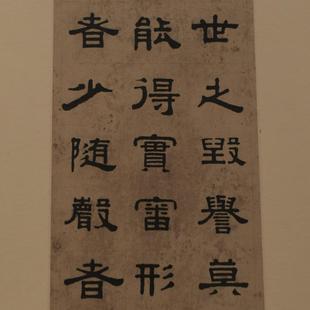 世之毀譽莫
能得實審形
者少隨聲者